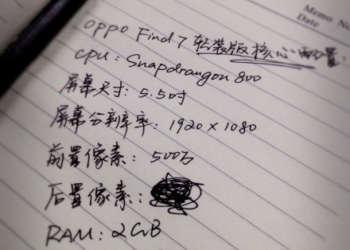 Memo No.
Date
OPPO Find 7 轻装版核心配置:
CPU: Snapdrangon 800
屏幕尺寸: 5.5吋
屏幕分辨率: 1920 x 1080
前置像素: 500万
后置像素:
RAM: 2GB